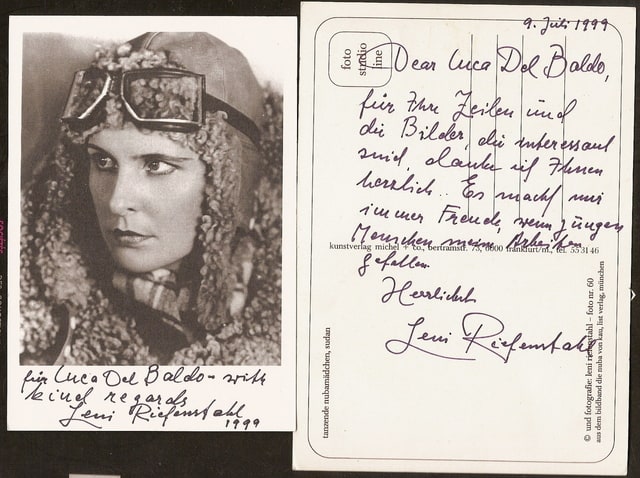 für Luca Del Baldo - with
kind regards
Leni Riefenstahl
1999
9. Juli 1999
foto
studio
line
Dear Luca Del Baldo,
für Ihre Zeilen und
die Bilder, die interessant
sind, danke ich Ihnen
herzlich. Es macht mir
immer Freude, wenn jungen
Menschen meine Arbeiten
kunstverlag michel + co., bertramstr. 75, 6000 frankfurt/m., tel. 553146
gefallen
Herzlichst
Leni Riefenstahl
tanzende nubamädchen, sudan
© und fotografie: leni riefenstahl – foto nr. 60
aus dem bildband die nuba von kau, list verlag, münchen